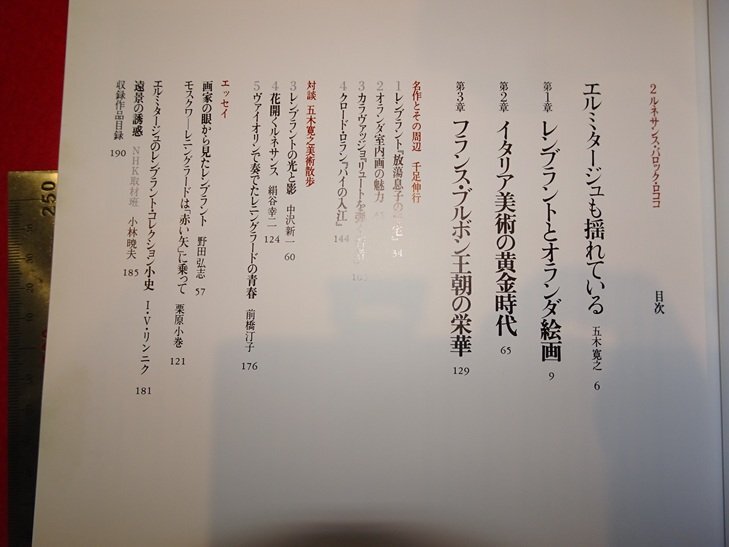 2 ルネサンス・バロック・ロココ
目次
エルミタージュも揺れている 五木寛之 6
第1章 レンブラントとオランダ絵画 9
第2章 イタリア美術の黄金時代 65
第3章 フランス・ブルボン王朝の栄華 129
名作とその周辺 千足伸行
1 レンブラント『放蕩息子の 宅』 34
2 オランダ室内画の魅力
3 カラヴァッジョ『リュートを弾く
4 クロード・ロラン『バイの入江』 144
対談 五木寛之美術散歩
3 レンブラントの光と影 中沢新一 60
4 花開くルネサンス 絹谷幸二 124
5 ヴァイオリンで奏でたレニングラードの青春 前橋汀子 176
エッセイ
画家の眼から見たレンブラント 野田弘志 57
モスクワ―レニングラードは「赤い矢」に乗って 栗原小巻 121
エルミタージュのレンブラント・コレクション小史 I・V・リンニク 181
遠景の誘惑 NHK取材班 小林暁夫 185
収録作品目録 190
250